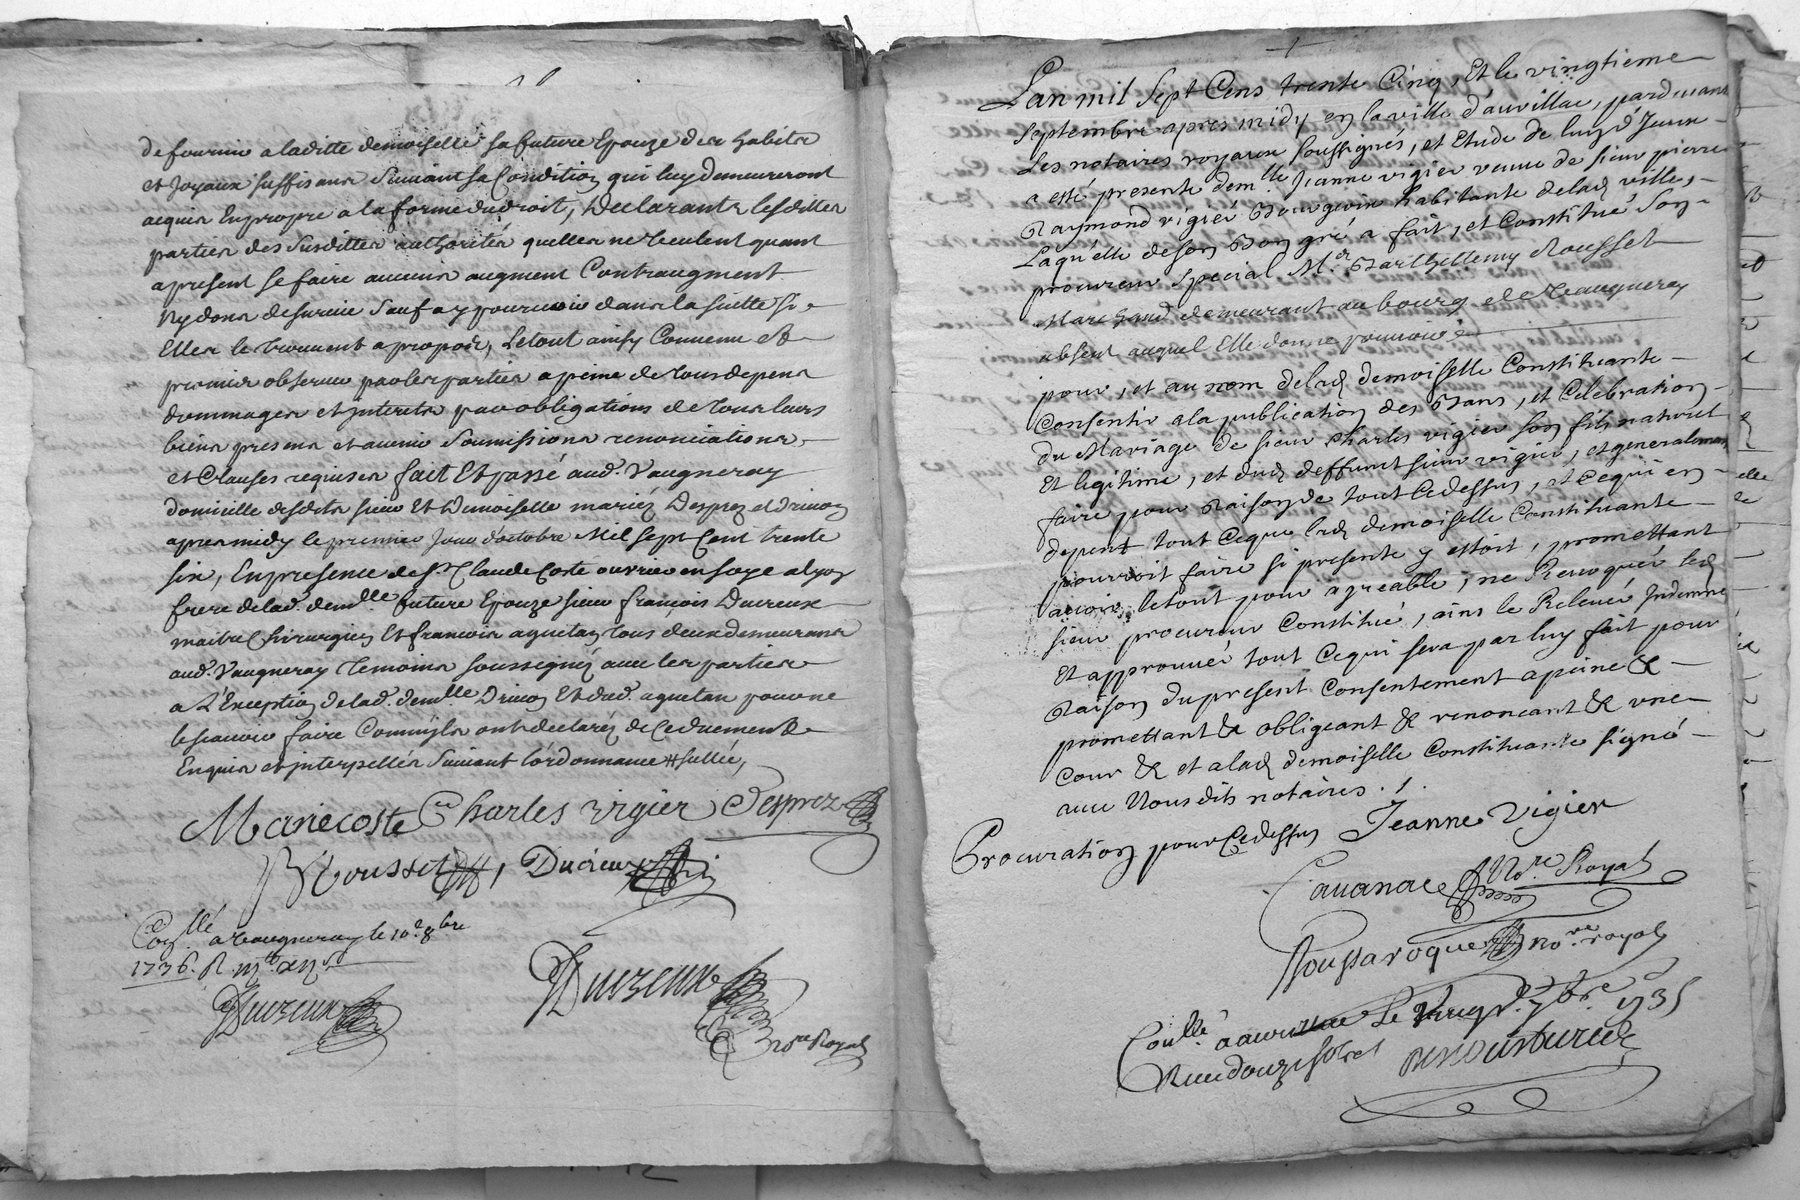 de fournir a laditte demoiselle sa future Epouze des habits
et Joyaux suffisans suivant sa Condition qui luy demeureront
acquis En propre a la forme du droit, Declarants lesdittes
parties des susdittes authorités quelles ne veulent quant
a present se faire aucuns augment Contraugment
Ny dons de survie sauf a y pourvoir dans la suitte si
Elles le trouvent a propos, Le tout ainsy Convenu &
promis observer par les parties a peine de tous depens
dommages et interets par obligations de tous leurs
biens presens et avenir soumissions renonciations
et Clauses requises fait Et passé aud. Vaugneray
domicille desdits sieur Et Demoiselle mariez Desprez et Drivon
apres midy le premier Jour d'octobre Mil sept Cent trente
six, En presence de Sr. Claude Coste ouvrier en soye a lyon
frere de lad. demlle. future Epouze sieur françois Ducreux
maitre Chirurgien Et francois aguetan tous deux demeurans
aud. Vaugneray temoins soussignéz avec les parties
a L'Exception de lad. demlle. Drivon Et dud. aguetan pour ne
le scavoir faire Comm'ils ont declarés de Ce duement
Enquis et interpellés suivant l'ordonnance
Marie coste Charles vigier Desprez
Rousset, Ducreux
Conllé a vaugneray le 10e 8bre
1736. R.
Ducreux
Ducreux
Nore Royal
+
L'an mil Sept Cens trente Cinq, Et le vingtieme
septembre apres midy en la ville d'auvillar, pardevant
Les notaires royaux soussignés, et Etude de luy d'Jeux
a esté presente demlle. Jeanne vigier veuve de sieur pierre
Raymond vigier Bourgeois habitante de lad ville,
Laquelle de son Bon gré a fait, et Constitué son
procureur special Mr. Barthellemy Rousset
Marchand demeurant au bourg de Veaugneray
absent auquel Elle donne pouvoir
pour, et au nom de lad demoiselle Constituante
Consentir a la publication des Bans, et Celebration
du Mariage de sieur Charles vigier son fils naturel
Et legitime, et dud deffunt sieur vigier, et generalement
faire pour Raison de tout Cedessus, et Cequi en
depent tout Ceque lad demoiselle Constituante
pourroit faire si presente y estoit, promettant
avoir le tout pour agreable, ne Revoquér led
sieur procureur Constitué, ains le Relever Indemne
Et approuvér tout Cequi sera par luy fait pour
Raison du present Consentement a peine &
promettant & obligeant & renoncant & une
Cour & et a lad demoiselle Constituante signé
avec Nousdits notaires.
Procuration pour Cedessus Jeanne Vigier
Cavanac Nore. Royal
Noussaroque nore. royal
Conllé a auvillar Le Vingt. 7bre 1735
Receu douze sols